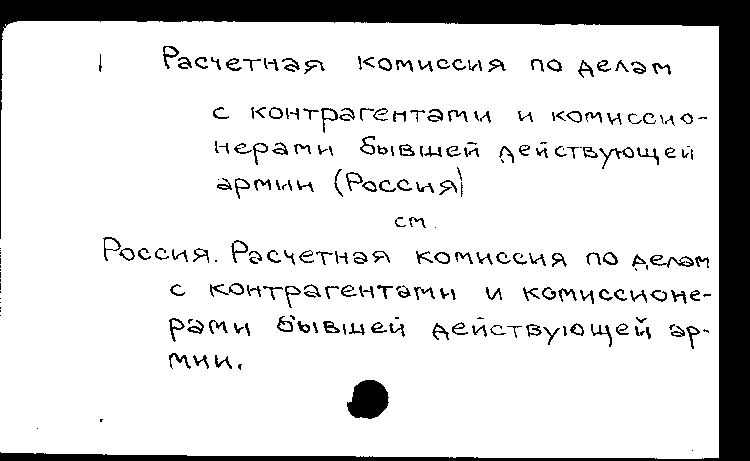 Расчетная комиссия по делам
с контрагентами и комиссио-
нерами бывшей действующей
армии (Россия)
см.
Россия. Расчетная комиссия по делам
с контрагентами и комиссионе-
рами бывшей действующей ар-
мии.